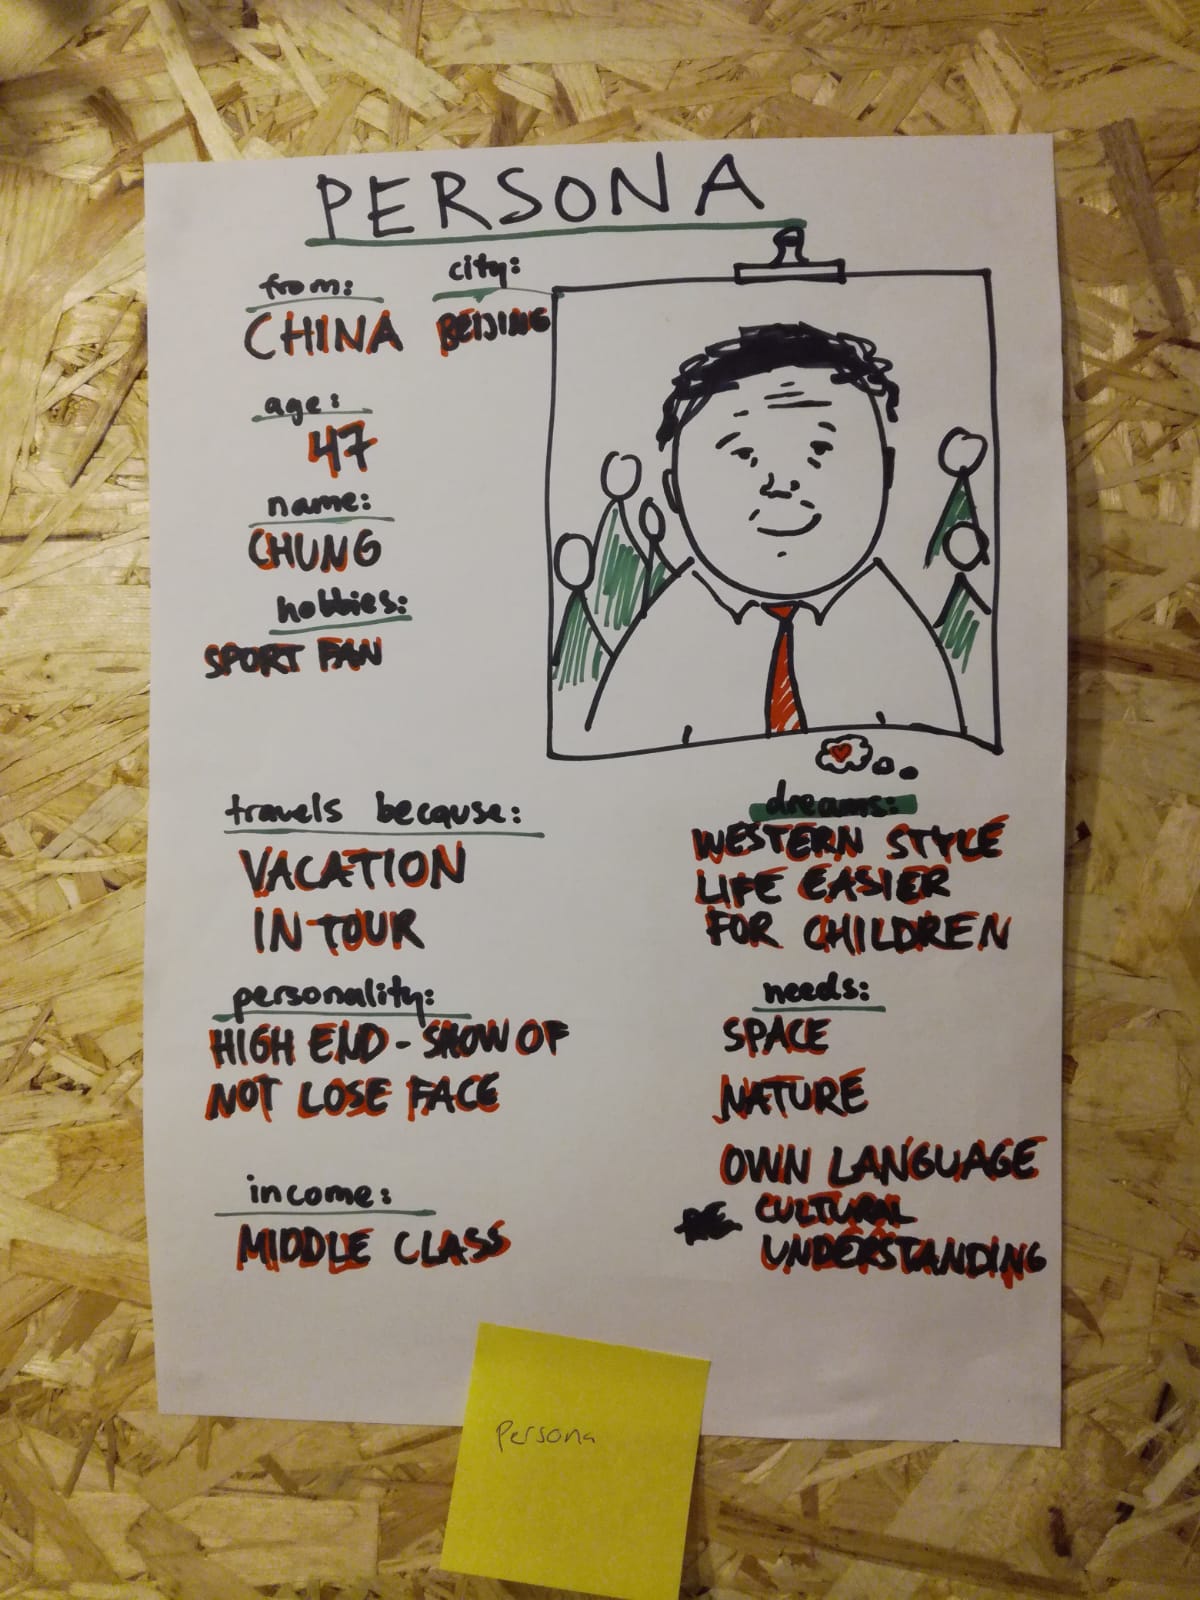 PERSONA
from:
CHINA
city:
BEIJING
age:
47
name:
CHUNG
hobbies:
SPORT FAN
travels because:
VACATION
IN TOUR
personality:
HIGH END - SHOW OF
NOT LOSE FACE
income:
MIDDLE CLASS
dreams:
WESTERN STYLE
LIFE EASIER
FOR CHILDREN
needs:
SPACE
NATURE
OWN LANGUAGE
CULTURAL
UNDERSTANDING
Persona